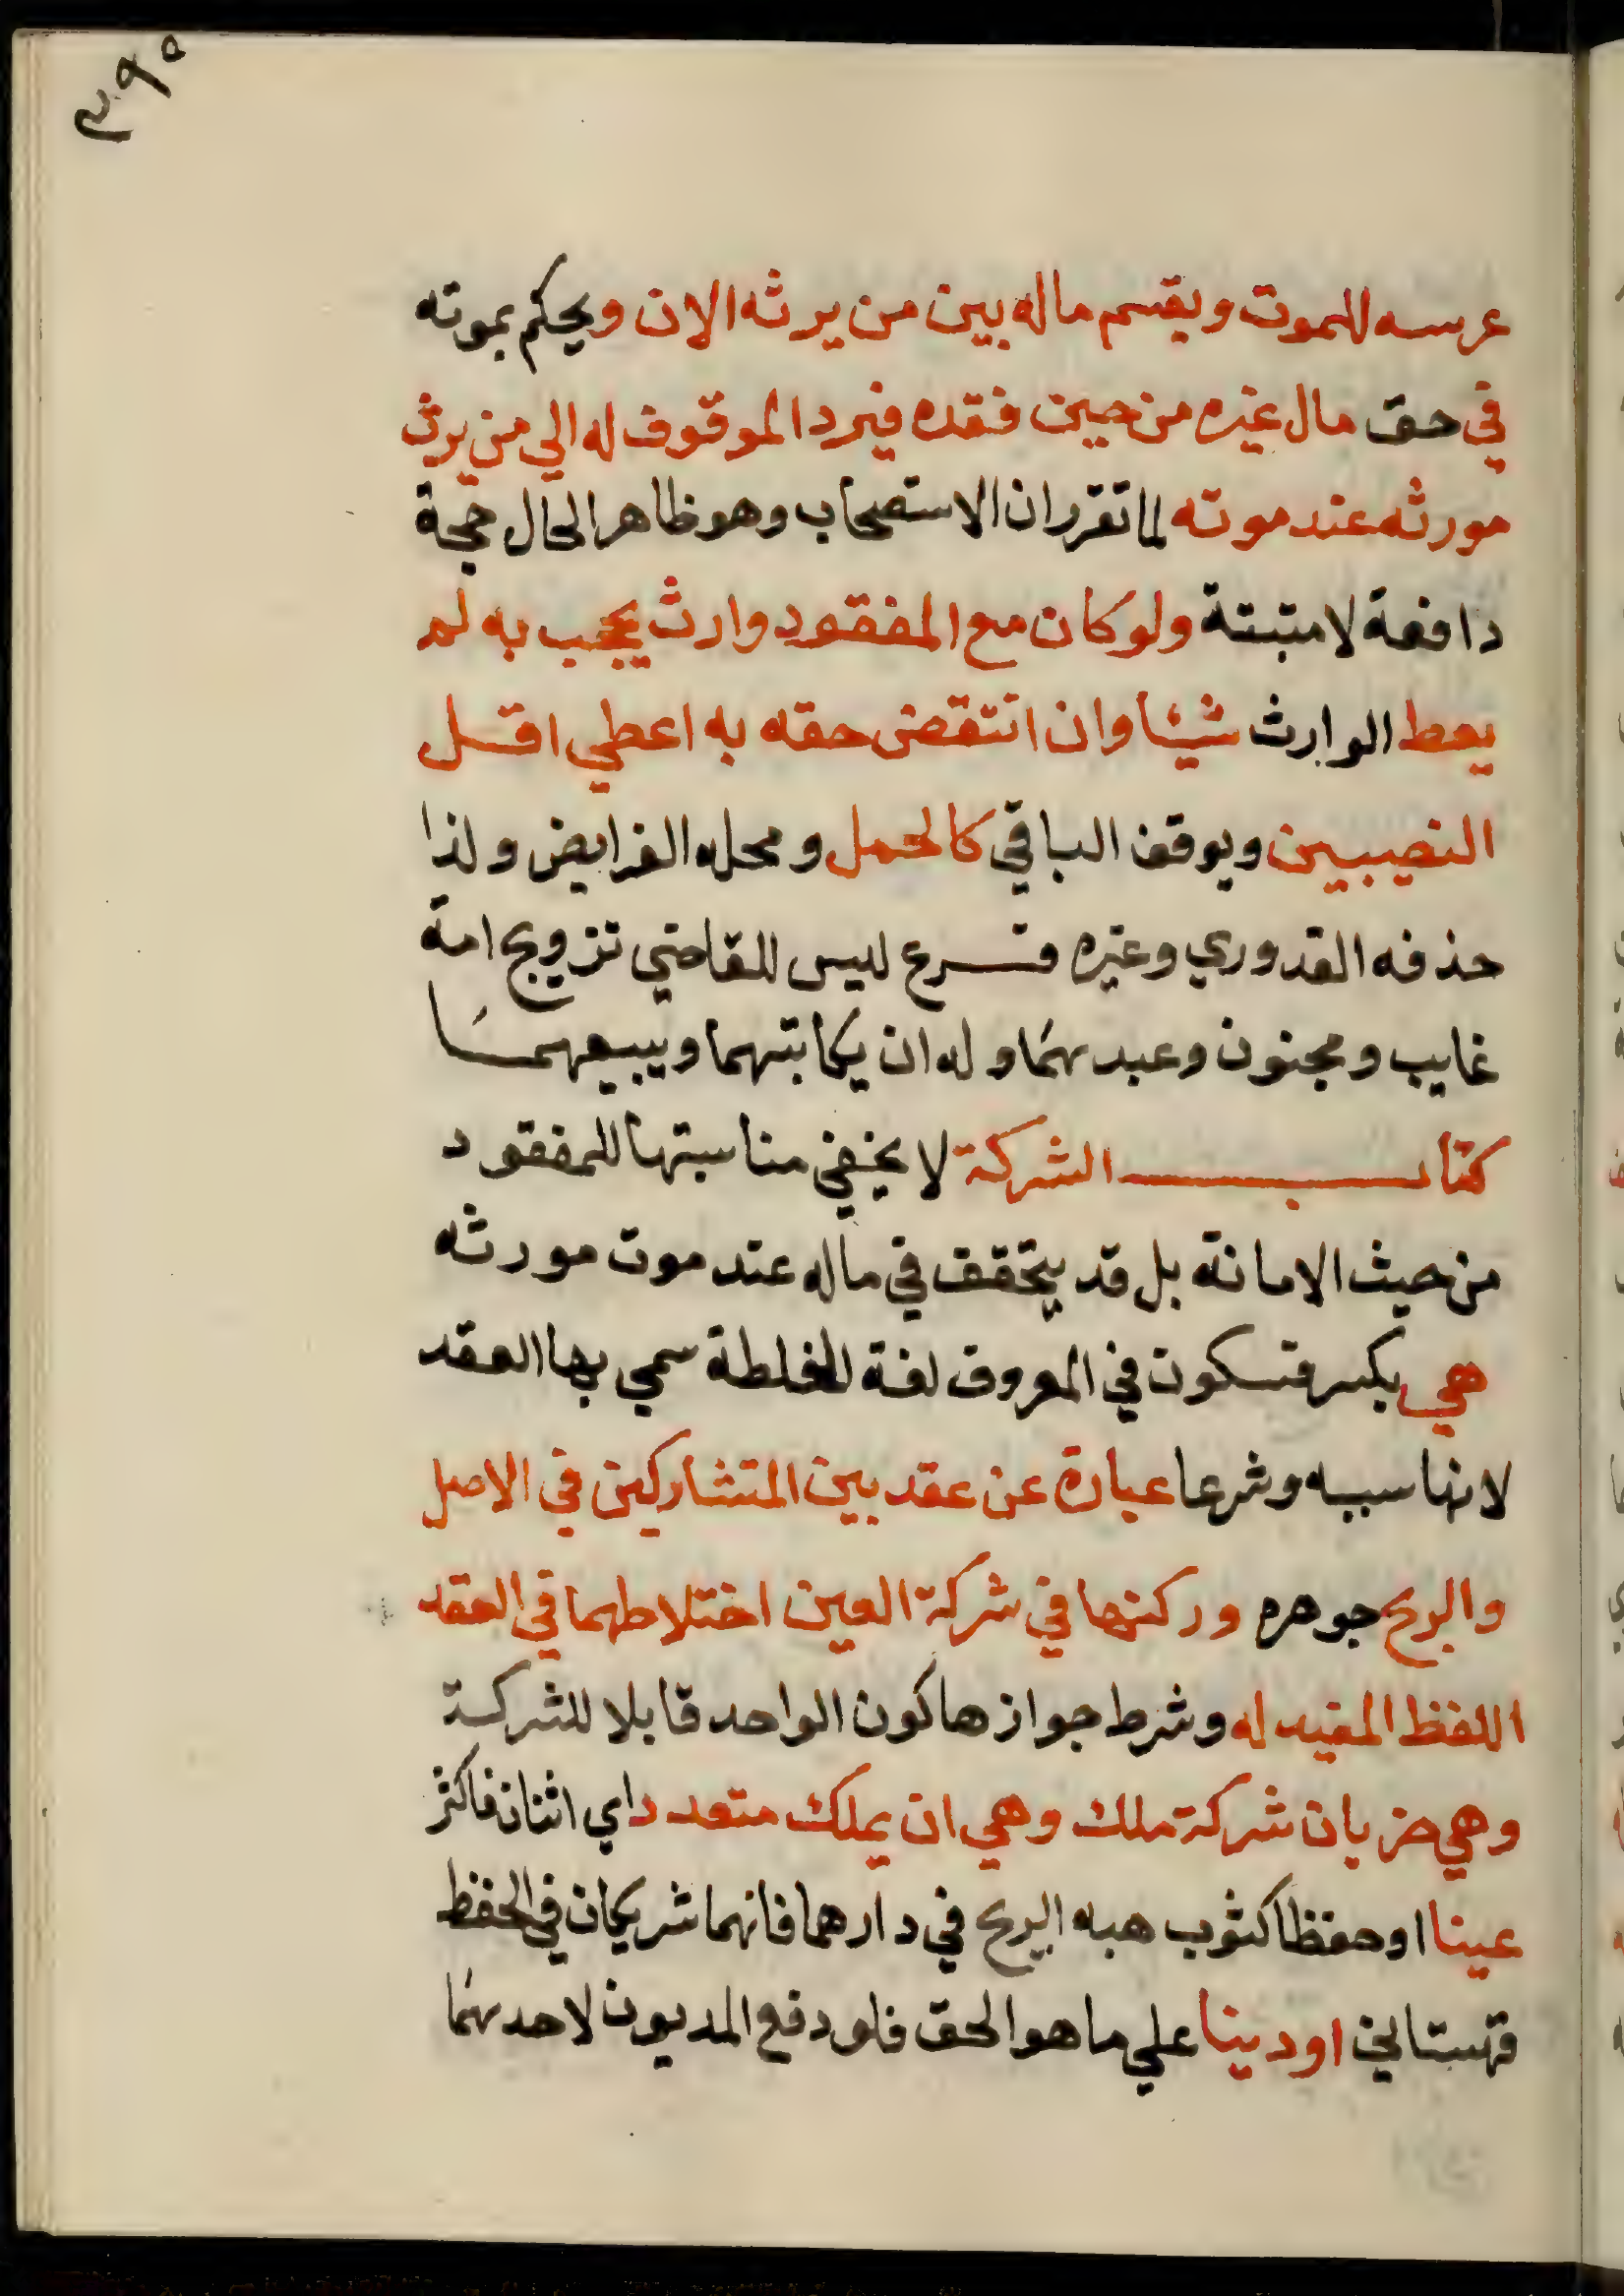 ٣٩٥
عرسه للموت ويقسم ماله بين من يرثه الان ويحكم بموته
في حق مال غيره من حين فقده فيرد الموقوف له الي من يرث
مورثه عند موته لما تقرر ان الاستصحاب وهو ظاهر الحال حجة
دافعة لا مثبتة ولو كان مع المفقود وارث يحجب به لم
يعط الوارث شيئا وان انتقض حقه به اعطي اقل
النصيبين ويوقف الباقي كالحمل ومحله الفرايض ولذا
حذفه القدوري وغيره فرع ليس للقاضي تزويج امة
غايب ومجنون وعبدهما وله ان يكاتبهما ويبيعهما
كتاب الشركة لا يخفي مناسبتها للمفقود
من حيث الامانة بل قد يتحقق في ماله عند موت مورثه
هي بكسر فسكون في المعروف لغة للخلطة سمي بها العقد
لانها سببه وشرعا عبارة عن عقد بين المتشاركين في الاصل
والربح جوهره وركنها في شركة العين اختلاطهما في العقد
اللفظ المفيد له وشرط جوازها كون الواحد قابلا للشركة
وهي ضربان شركة ملك وهي ان يملك متعدد اي اثنان فاكثر
عينا او حفظا كثوب هبه الريح في دارهما فانهما شريكان في الحفظ
قهستاني او دينا علي ما هو الحق فلو دفع المديون لاحدهما